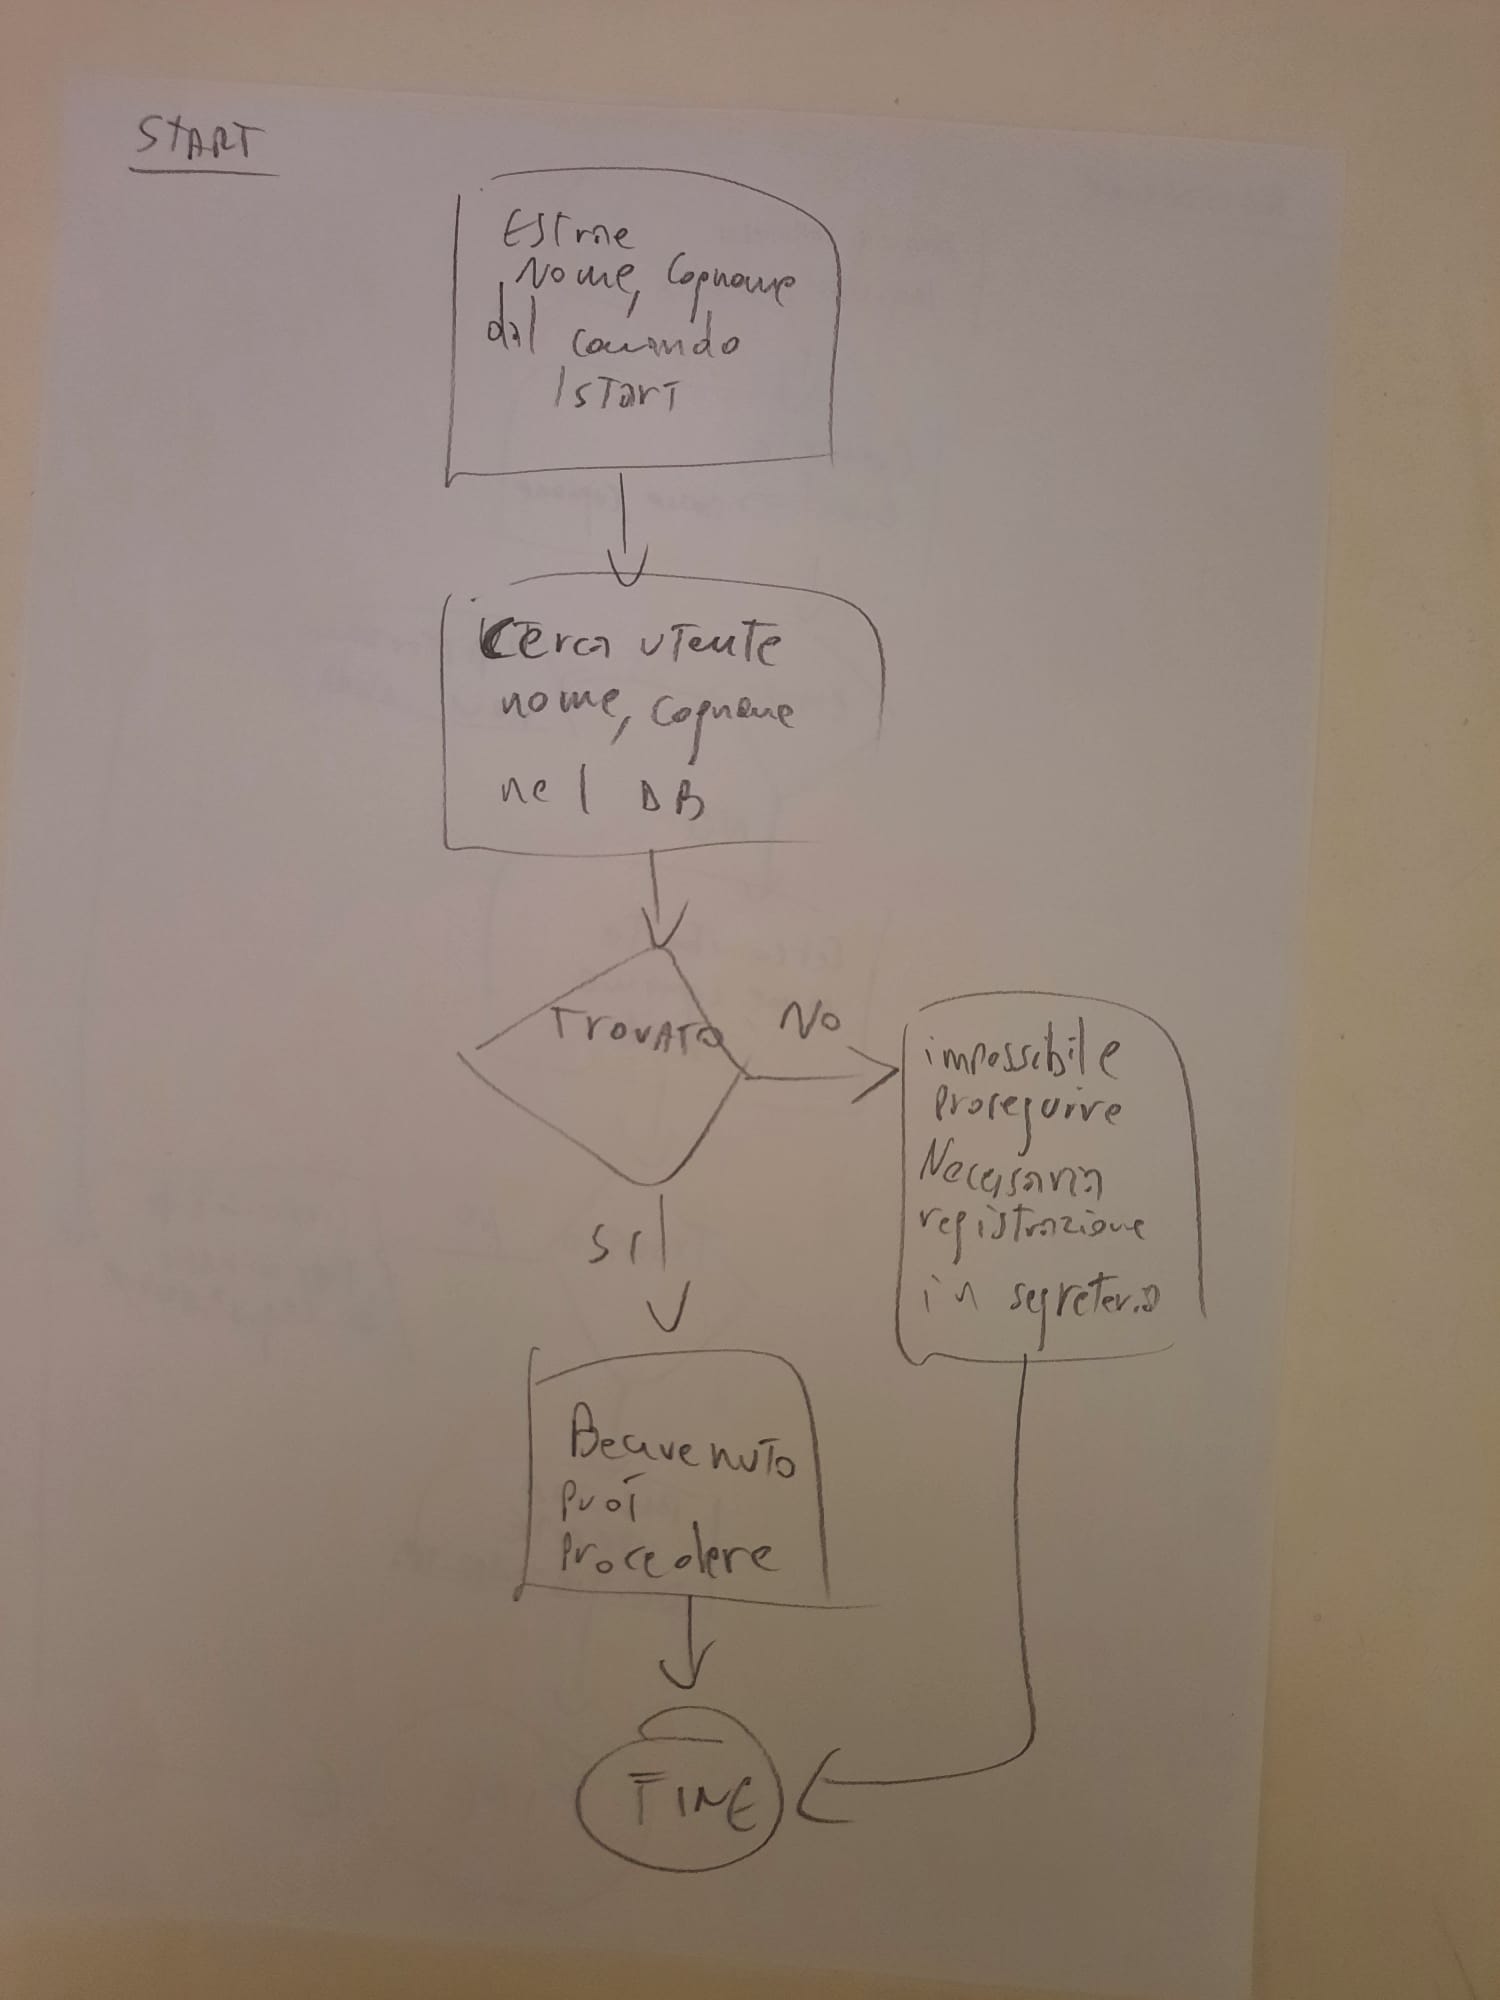 START
Estrae
Nome, Cognome
dal comando
/START
Cerca utente
nome, cognome
nel DB
TROVATO
No
impossibile
proseguire
Necessaria
registrazione
in segreteria
SI
Benvenuto
Puoi
Procedere
FINE